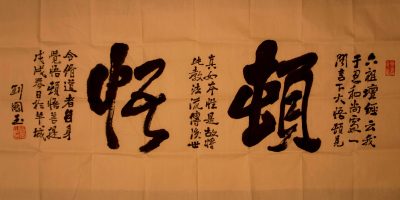 六祖壇經云我
于忍和尚處一
聞言下大悟頓見
頓
真如本性是故將
此教法流傳後世
悟
令修道者自身
覺悟頓悟菩提
戊戌春日於羊城
劉國玉